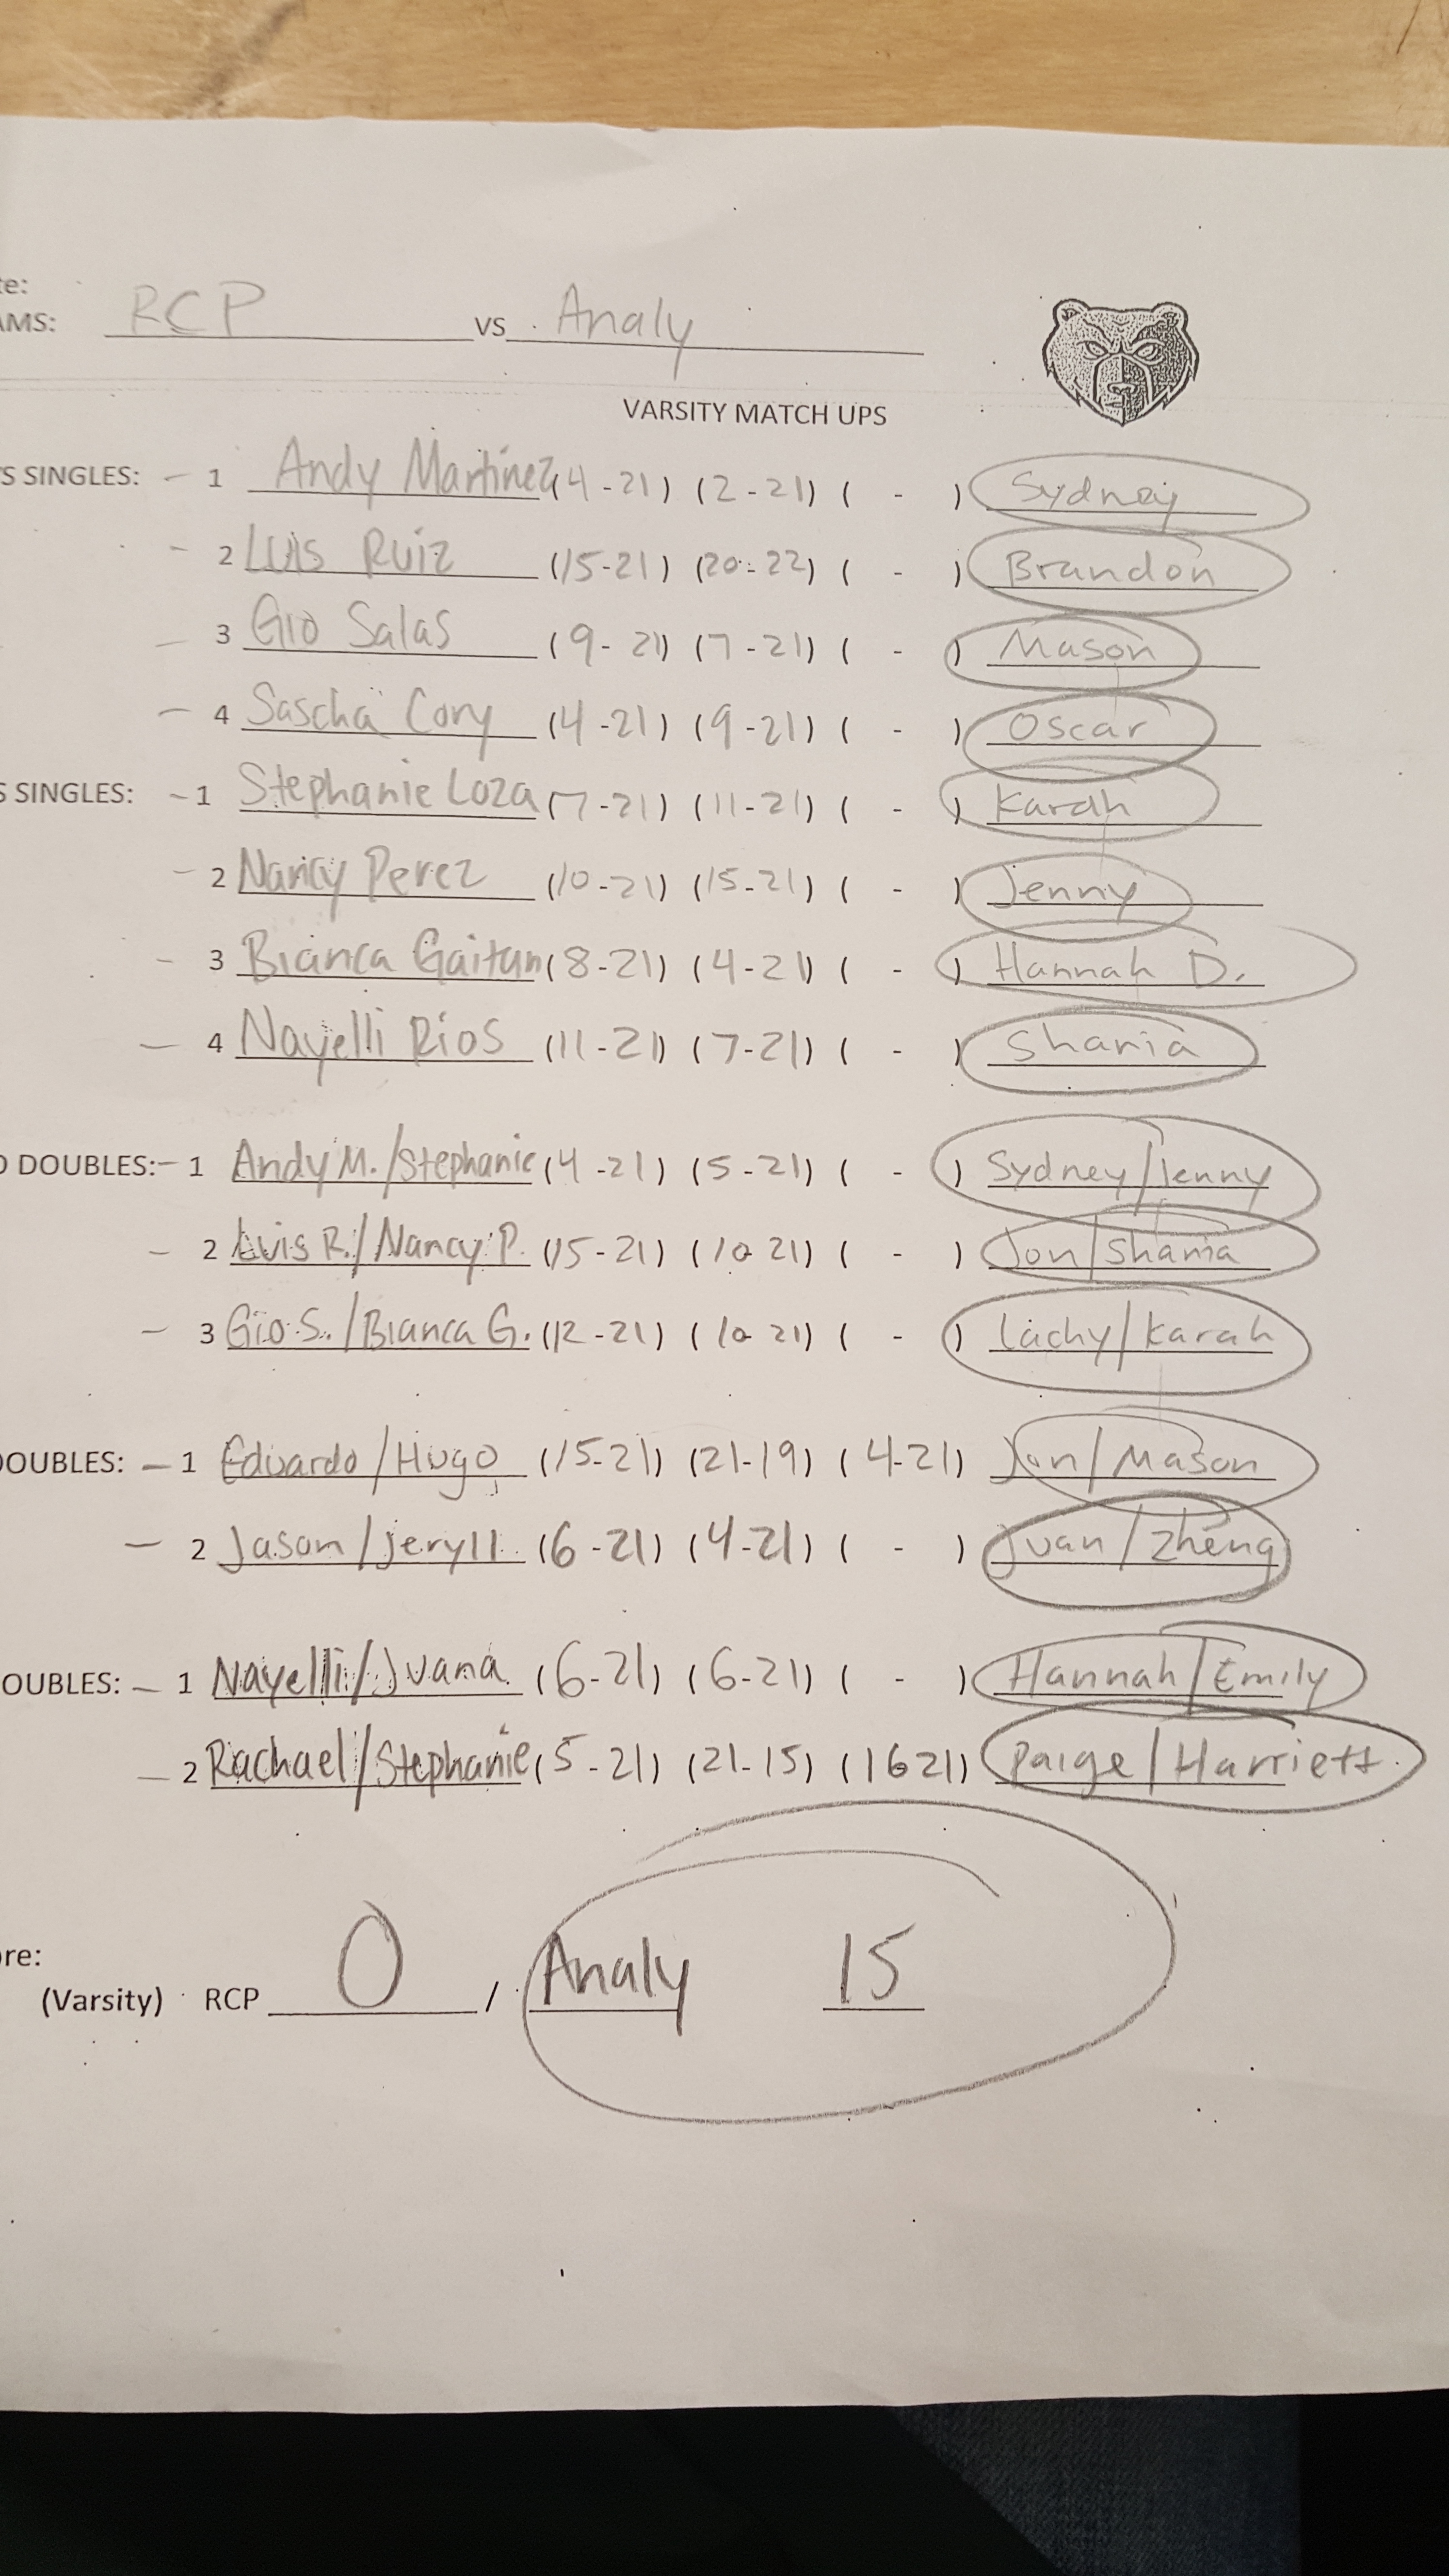 te:
AMS: RCP vs. Analy
VARSITY MATCH UPS
S SINGLES: - 1 Andy Martinez (4-21) (2-21) ( - ) Sydney
- 2 Luis Ruiz (15-21) (20-22) ( - ) Brandon
- 3 Gio Salas (9-21) (7-21) ( - ) Mason
- 4 Sascha Cory (4-21) (9-21) ( - ) Oscar
S SINGLES: - 1 Stephanie Loza (7-21) (11-21) ( - ) Karah
- 2 Nancy Perez (10-21) (15-21) ( - ) Jenny
- 3 Bianca Gaitan (8-21) (4-21) ( - ) Hannah D.
- 4 Nayelli Rios (11-21) (7-21) ( - ) Shania
D DOUBLES: - 1 Andy M./Stephanie (4-21) (5-21) ( - ) Sydney/Jenny
- 2 Luis R./Nancy P. (15-21) (10 21) ( - ) Jon/Shania
- 3 Gio S./Bianca G. (12-21) (10 21) ( - ) Lachy/Karah
OUBLES: - 1 Eduardo/Hugo (15-21) (21-19) (4-21) Jon/Mason
- 2 Jason/Jeryll (6-21) (4-21) ( - ) Juan/Zheng
OUBLES: - 1 Nayelli/Juana (6-21) (6-21) ( - ) Hannah/Emily
- 2 Rachael/Stephanie (5-21) (21-15) (16 21) Paige/Harriett
ore:
(Varsity) RCP 0 / Analy 15